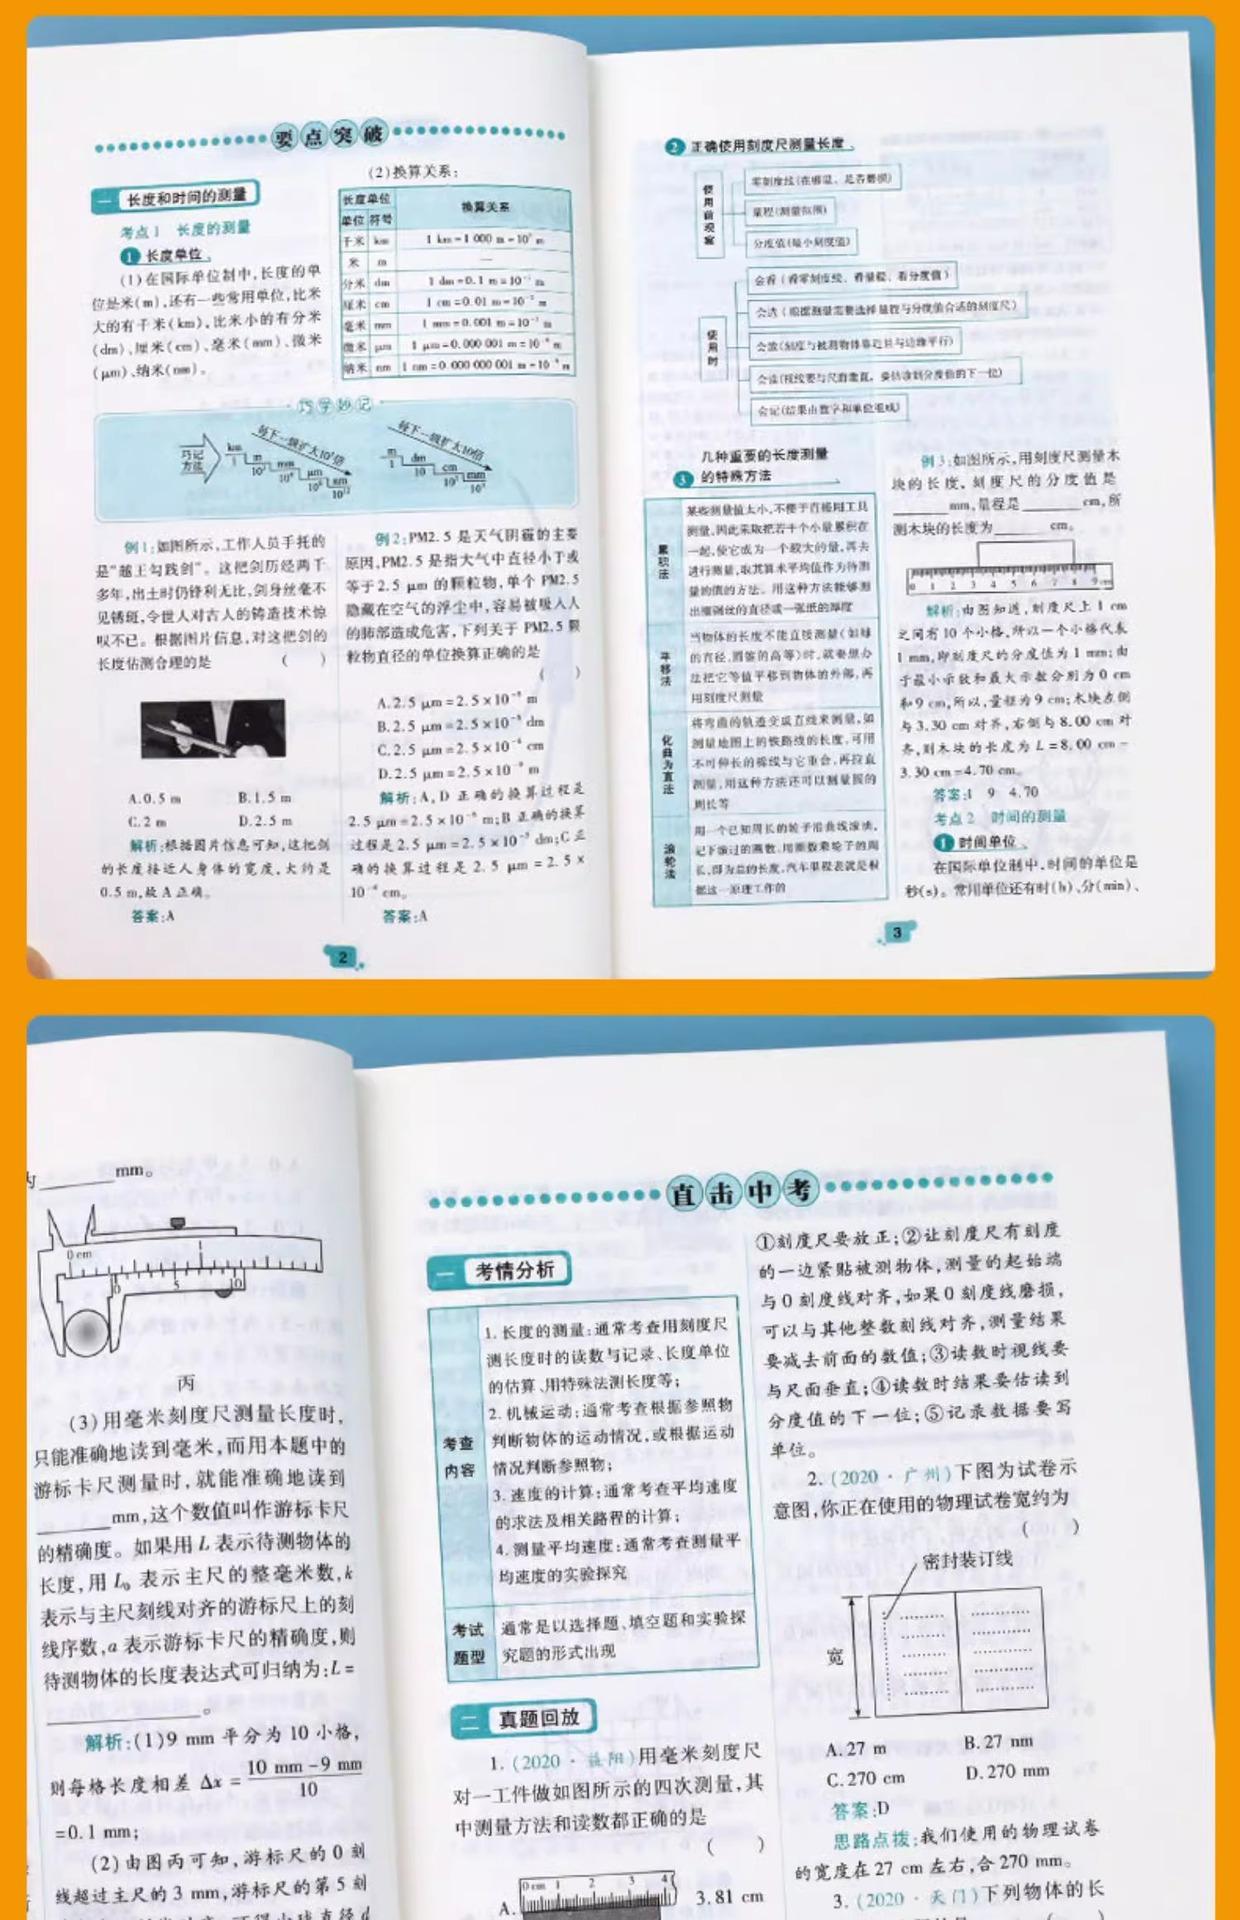 要点突破
一 长度和时间的测量
考点1 长度的测量
1 长度单位
(1)在国际单位制中,长度的单
位是米(m),还有一些常用单位,比米
大的有千米(km),比米小的有分米
(dm)、厘米(cm)、毫米(mm)、微米
(μm)、纳米(nm)。
(2)换算关系:
长度单位 换算关系
单位 符号
千米 km 1 km=1 000 m=10³ m
米 m —
分米 dm 1 dm=0.1 m=10⁻¹ m
厘米 cm 1 cm=0.01 m=10⁻² m
毫米 mm 1 mm=0.001 m=10⁻³ m
微米 μm 1 μm=0.000 001 m=10⁻⁶ m
纳米 nm 1 nm=0.000 000 001 m=10⁻⁹ m
巧学妙记
巧记
方法
每下一级扩大10³倍
km m mm μm nm
1 10³ 10⁶ 10⁹ 10¹²
每下一级扩大10倍
m dm cm mm
1 10 10² 10³
例1:如图所示,工作人员手托的
是“越王勾践剑”。这把剑历经两千
多年,出土时仍锋利无比,剑身丝毫不
见锈斑,令世人对古人的铸造技术惊
叹不已。根据图片信息,对这把剑的
长度估测合理的是 ( )
A.0.5 m B.1.5 m
C.2 m D.2.5 m
解析:根据图片信息可知,这把剑
的长度接近人身体的宽度,大约是
0.5 m,故A正确。
答案:A
例2:PM2.5是天气阴霾的主要
原因,PM2.5是指大气中直径小于或
等于2.5 μm的颗粒物,单个PM2.5
隐藏在空气的浮尘中,容易被吸入人
的肺部造成危害,下列关于PM2.5颗
粒物直径的单位换算正确的是
( )
A.2.5 μm=2.5×10⁻⁶ m
B.2.5 μm=2.5×10⁻⁵ dm
C.2.5 μm=2.5×10⁻⁶ cm
D.2.5 μm=2.5×10⁻⁹ m
解析:A、D正确的换算过程是
2.5 μm=2.5×10⁻⁶ m;B正确的换算
过程是2.5 μm=2.5×10⁻⁵ dm;C正
确的换算过程是2.5 μm=2.5×
10⁻⁴ cm。
答案:A
2
2 正确使用刻度尺测量长度
使用前观察
零刻度线(在哪里、是否磨损)
量程(测量范围)
分度值(最小刻度值)
使用时
会看(看零刻度线、看量程、看分度值)
会选(根据测量需要选择量程与分度值合适的刻度尺)
会放(刻度与被测物体靠近且与边缘平行)
会读(视线要与尺面垂直,要估读到分度值的下一位)
会记(结果由数字和单位组成)
3 几种重要的长度测量
的特殊方法
累积法
某些测量值太小,不便于直接用工具
测量,因此采取把若干个小量累积在
一起,使它成为一个较大的量,再去
进行测量,取其算术平均值作为待测
量的值的方法。用这种方法能够测
出细铜丝的直径或一张纸的厚度
平移法
当物体的长度不能直接测量(如球
的直径,圆锥的高等)时,就要想办
法把它等值平移到物体的外部,再
用刻度尺测量
化曲为直法
将弯曲的轨迹变成直线来测量,如
测量地图上的铁路线的长度,可用
不可伸长的棉线与它重合,再拉直
测量,用这种方法还可以测量圆的
周长等
滚轮法
用一个已知周长的轮子沿曲线滚动,
记下滚过的圈数,用圈数乘轮子的周
长,即为总的长度,汽车里程表就是根
据这一原理工作的
例3:如图所示,用刻度尺测量木
块的长度,刻度尺的分度值是
______mm,量程是______cm,所
测木块的长度为______cm。
0 1 2 3 4 5 6 7 8 9cm
解析:由图知道,刻度尺上1 cm
之间有10个小格,所以一个小格代表
1 mm,即刻度尺的分度值为1 mm;由
于最小示数和最大示数分别为0 cm
和9 cm,所以,量程为9 cm;木块左侧
与3.30 cm对齐,右侧与8.00 cm对
齐,则木块的长度为L=8.00 cm-
3.30 cm=4.70 cm。
答案:1 9 4.70
考点2 时间的测量
1 时间单位
在国际单位制中,时间的单位是
秒(s)。常用单位还有时(h)、分(min)、
3
为______mm。
0 cm
0 5 10
丙
(3)用毫米刻度尺测量长度时,
只能准确地读到毫米,而用本题中的
游标卡尺测量时,就能准确地读到
______mm,这个数值叫作游标卡尺
的精确度。如果用L表示待测物体的
长度,用L₀表示主尺的整毫米数,k
表示与主尺刻线对齐的游标尺上的刻
线序数,a表示游标卡尺的精确度,则
待测物体的长度表达式可归纳为:L=
____________。
解析:(1)9 mm平分为10小格,
则每格长度相差Δx=(10 mm-9 mm)/10
=0.1 mm;
(2)由图丙可知,游标尺的0刻
线超过主尺的3 mm,游标尺的第5刻
直击中考
一 考情分析
考查内容
1.长度的测量:通常考查用刻度尺
测长度时的读数与记录、长度单位
的估算、用特殊法测长度等;
2.机械运动:通常考查根据参照物
判断物体的运动情况,或根据运动
情况判断参照物;
3.速度的计算:通常考查平均速度
的求法及相关路程的计算;
4.测量平均速度:通常考查测量平
均速度的实验探究
考试题型
通常是以选择题、填空题和实验探
究题的形式出现
二 真题回放
1.(2020·益阳)用毫米刻度尺
对一工件做如图所示的四次测量,其
中测量方法和读数都正确的是
( )
A. 0cm 1 2 3 4 3.81 cm
①刻度尺要放正;②让刻度尺有刻度
的一边紧贴被测物体,测量的起始端
与0刻度线对齐,如果0刻度线磨损,
可以与其他整数刻线对齐,测量结果
要减去前面的数值;③读数时视线要
与尺面垂直;④读数时结果要估读到
分度值的下一位;⑤记录数据要写
单位。
2.(2020·广州)下图为试卷示
意图,你正在使用的物理试卷宽约为
( )
密封装订线
宽
A.27 m B.27 nm
C.270 cm D.270 mm
答案:D
思路点拨:我们使用的物理试卷
的宽度在27 cm左右,合270 mm。
3.(2020·天门)下列物体的长